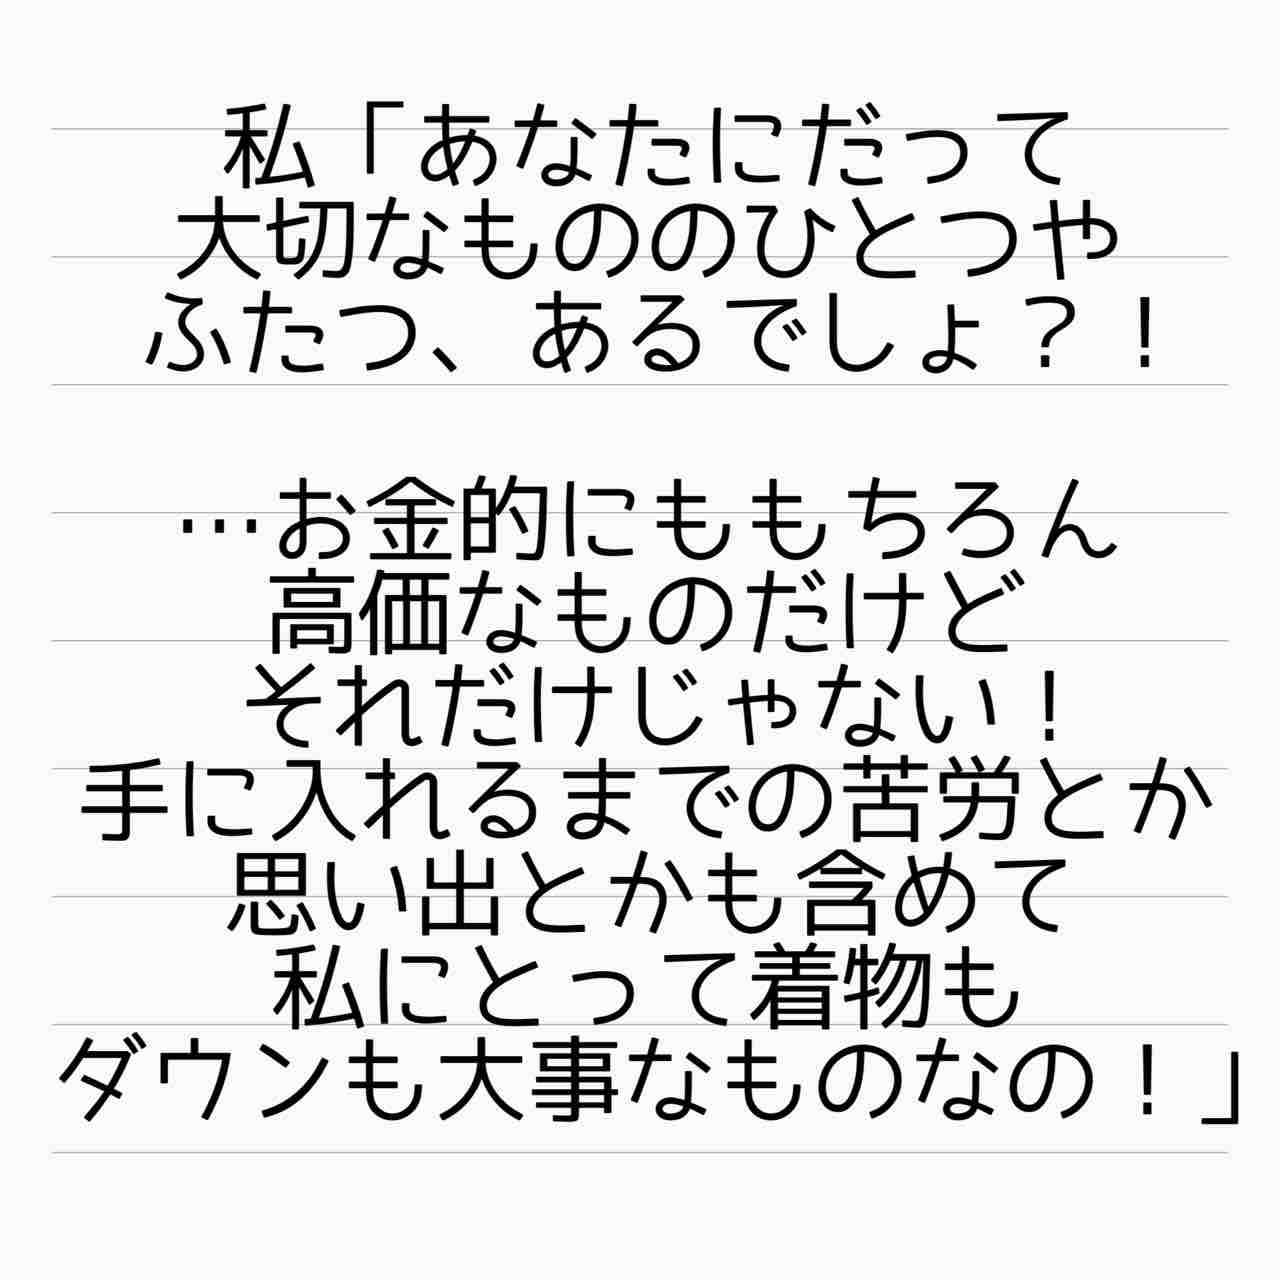 私「あなたにだって
大切なもののひとつや
ふたつ、あるでしょ？！
…お金的にももちろん
高価なものだけど
それだけじゃない！
手に入れるまでの苦労とか
思い出とかも含めて
私にとって着物も
ダウンも大事なものなの！」